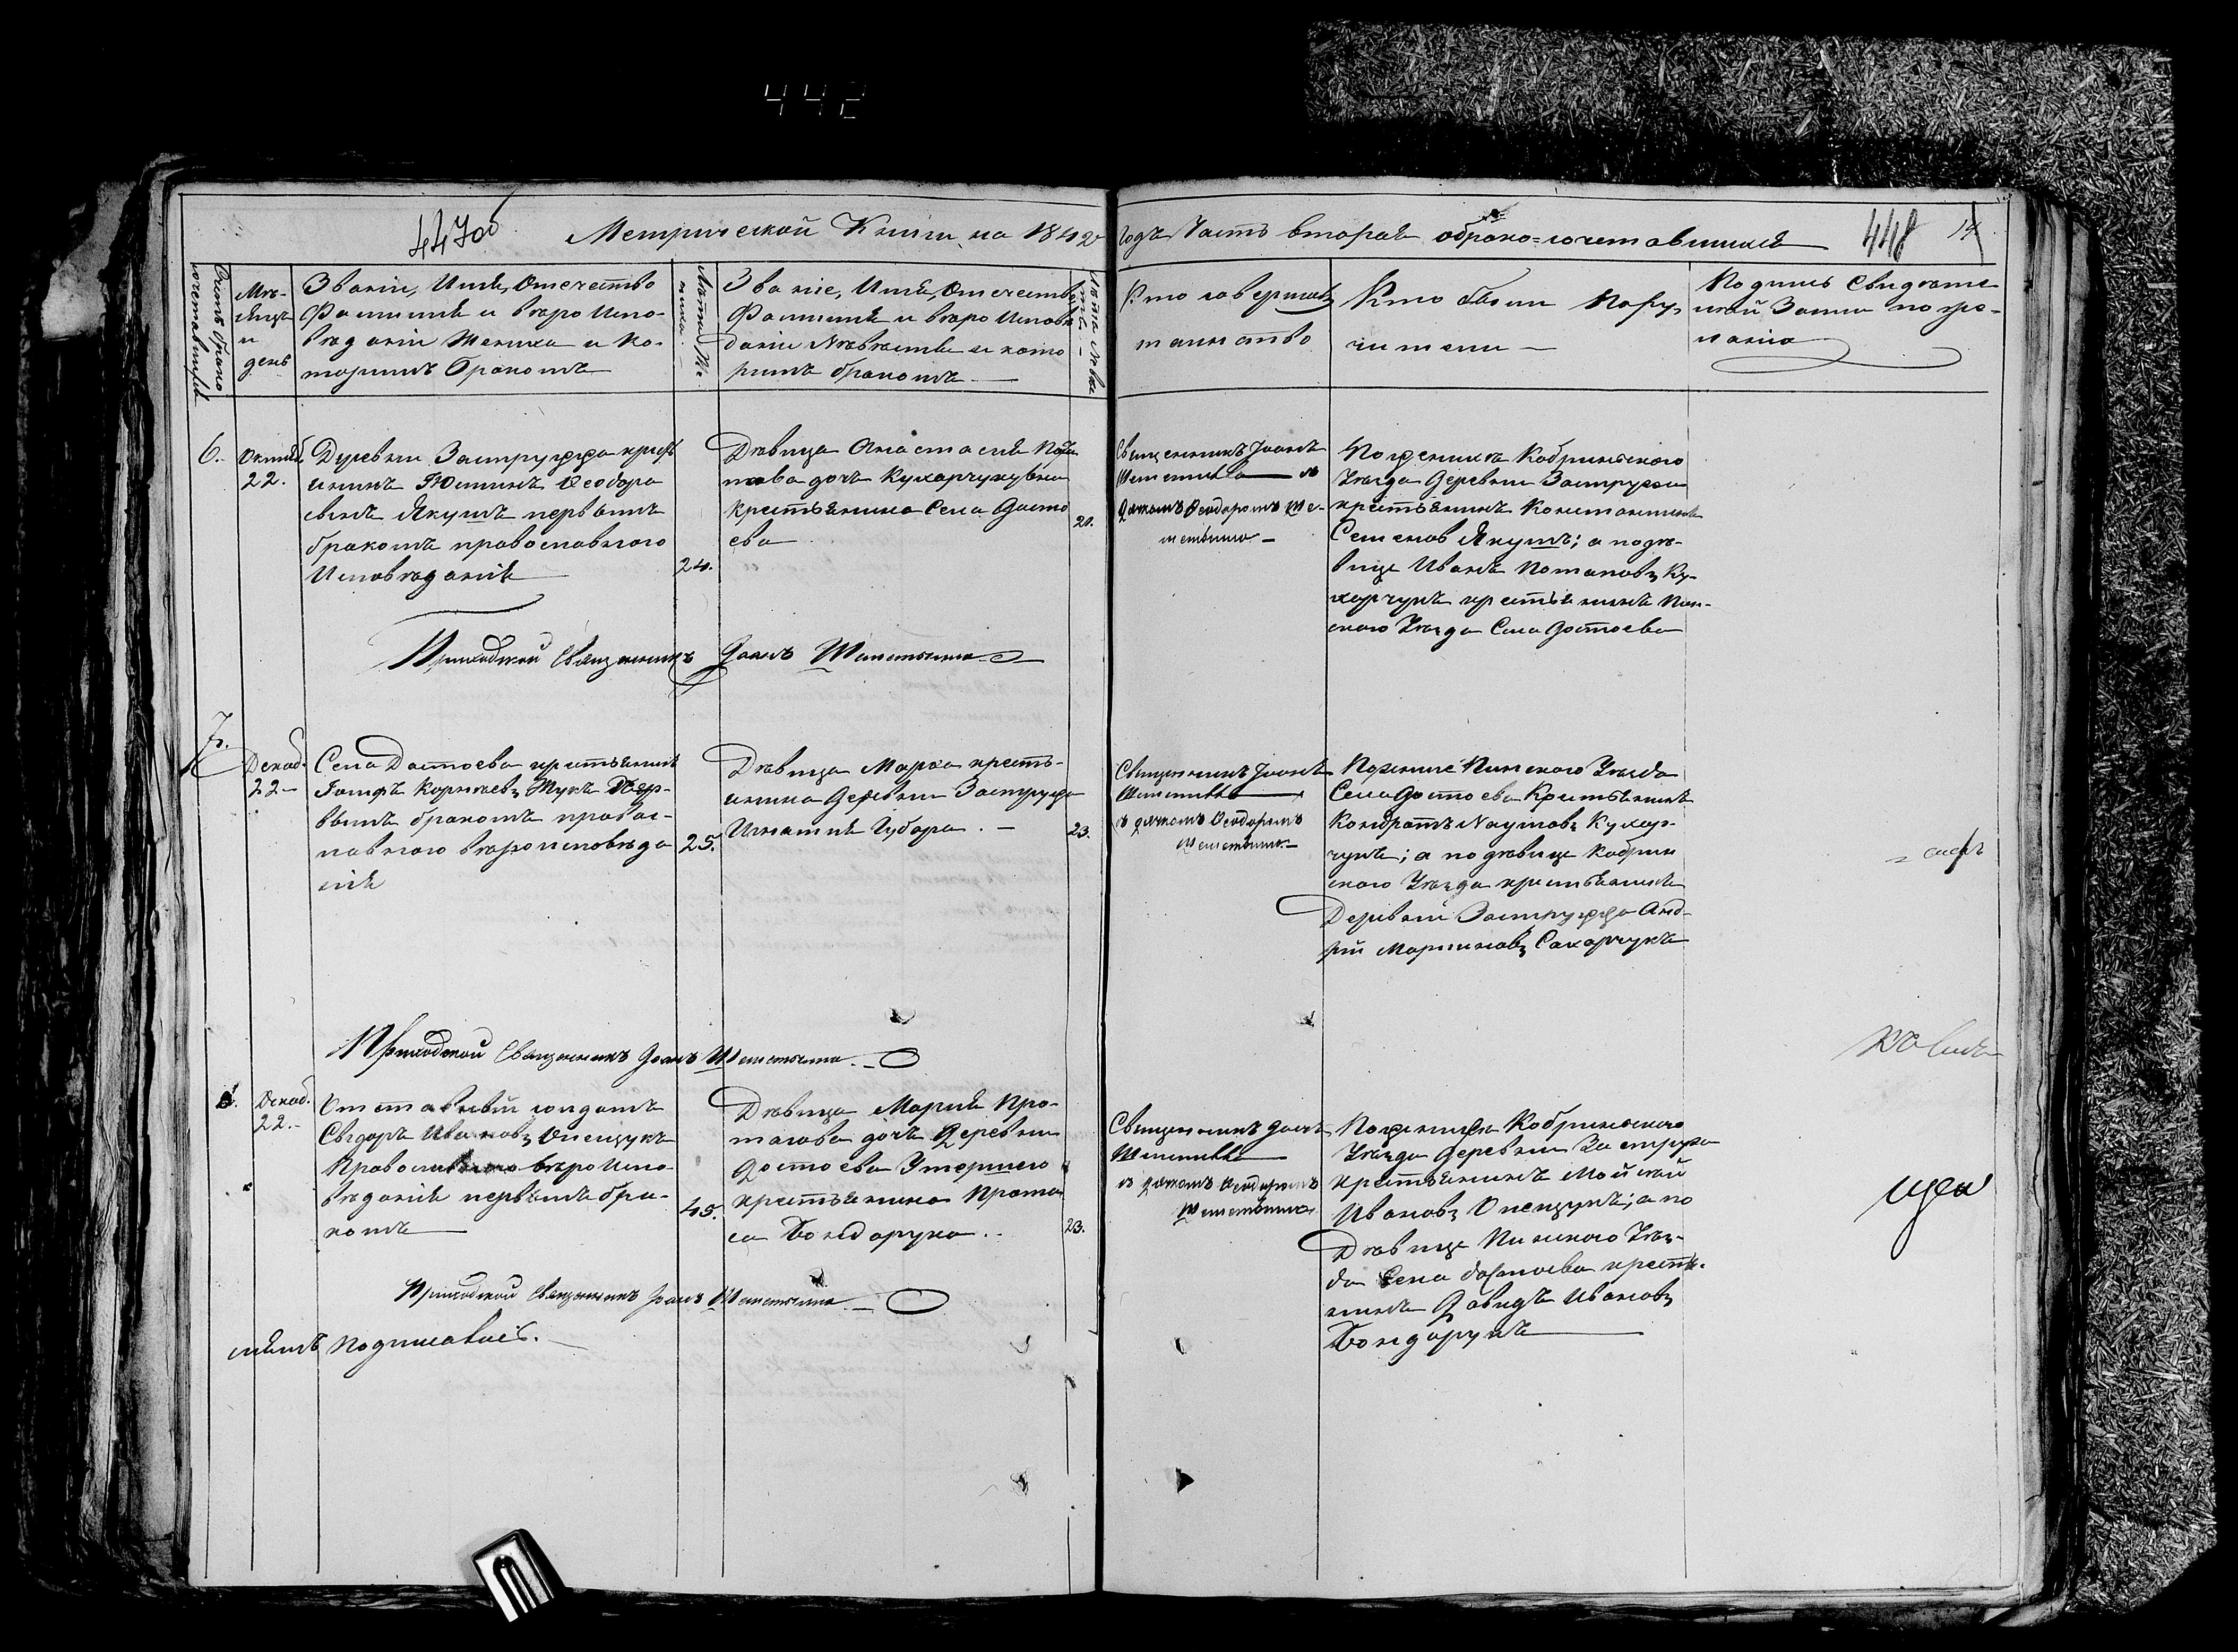 442
447об
Метрической Книги на 1842
годъ Часть вторая о бракосочетавшихся
448
14
Мѣ-
сяцъ
и
день
Званіе, Имя, Отечество
Фамилія и вѣро Испо-
вѣданіе Жениха и Ко-
торимъ Бракомъ
Званіе, Имя, Отечество
Фамилія и вѣро Исповѣ
даніе Невѣсты и кото
римъ бракомъ
Кто совершалъ
таинство
Кто были Пору
чители
Подпись Свидѣте
лей Записи по же-
ланію
6.
Октяб.
22.
Деревни Застружжа крест
янинъ Юстинъ Ѳеодоро
вичъ Якушъ первымъ
бракомъ православного
Исповѣданія
24.
Дѣвица Анастасия Пота
пова дочь Кухарчукувна
крестьянина Села Досто
ева
21.
Священникъ Іоаннъ
съ
Дячкомъ Ѳеодоромъ
По женихѣ Кобринского
Уѣзда Деревни Застружжа
крестьянинъ Константинъ
Семенов Якушъ; а по дѣ-
вице Иванъ Потаповъ Ку-
харчукъ крестьянинъ Пин-
ского Уѣзда Села Достоева
Приходской Священникъ Іоанъ
7.
Декаб.
22
Села Достоева крестьянинъ
Іосифъ Корнѣевъ Жукъ Пер-
ввымъ бракомъ правос-
лавного вѣроисповѣда
нія
25.
Дѣвица Марѳа кресть-
янина Деревни Застружа
Игнатия Губара.
23.
Священникъ Іоаннъ
съ дячкомъ Ѳеодоромъ
По жениле Пинского Уѣзда
Села Достоева Крестьянинъ
Кондратъ Наумовъ Кухар-
чукъ; а по дѣвице Кобрин
ского Уѣзда крестьянинъ
Деревни Застружжа Анд-
рей Мартиновъ Сахарчукъ
Приходской Священникъ Іоанъ
8.
Декаб.
22.
Отставный солдатъ
Сидоръ Ивановъ Опенцукъ
вѣроиспо
вѣданія первымъ бра-
комъ
45.
Дѣвица Мария Про-
тасова дочь Деревни
Достоева Умершего
крестьянина Прота
са Бондарука..
23.
Священникъ Іоанъ
съ дячкомъ Ѳеодоромъ
По женихѣ Кобринского
Уѣзда Деревни Застружа
крестьянинъ Мойсей
Ивановъ Опенцукъ; а по
Дѣвице Пинского Уѣз-
да Села Достоева кресть-
янинъ Давидъ Ивановъ
Бондарукъ
Приходской Священникъ Іоанъ
Подписавъ.